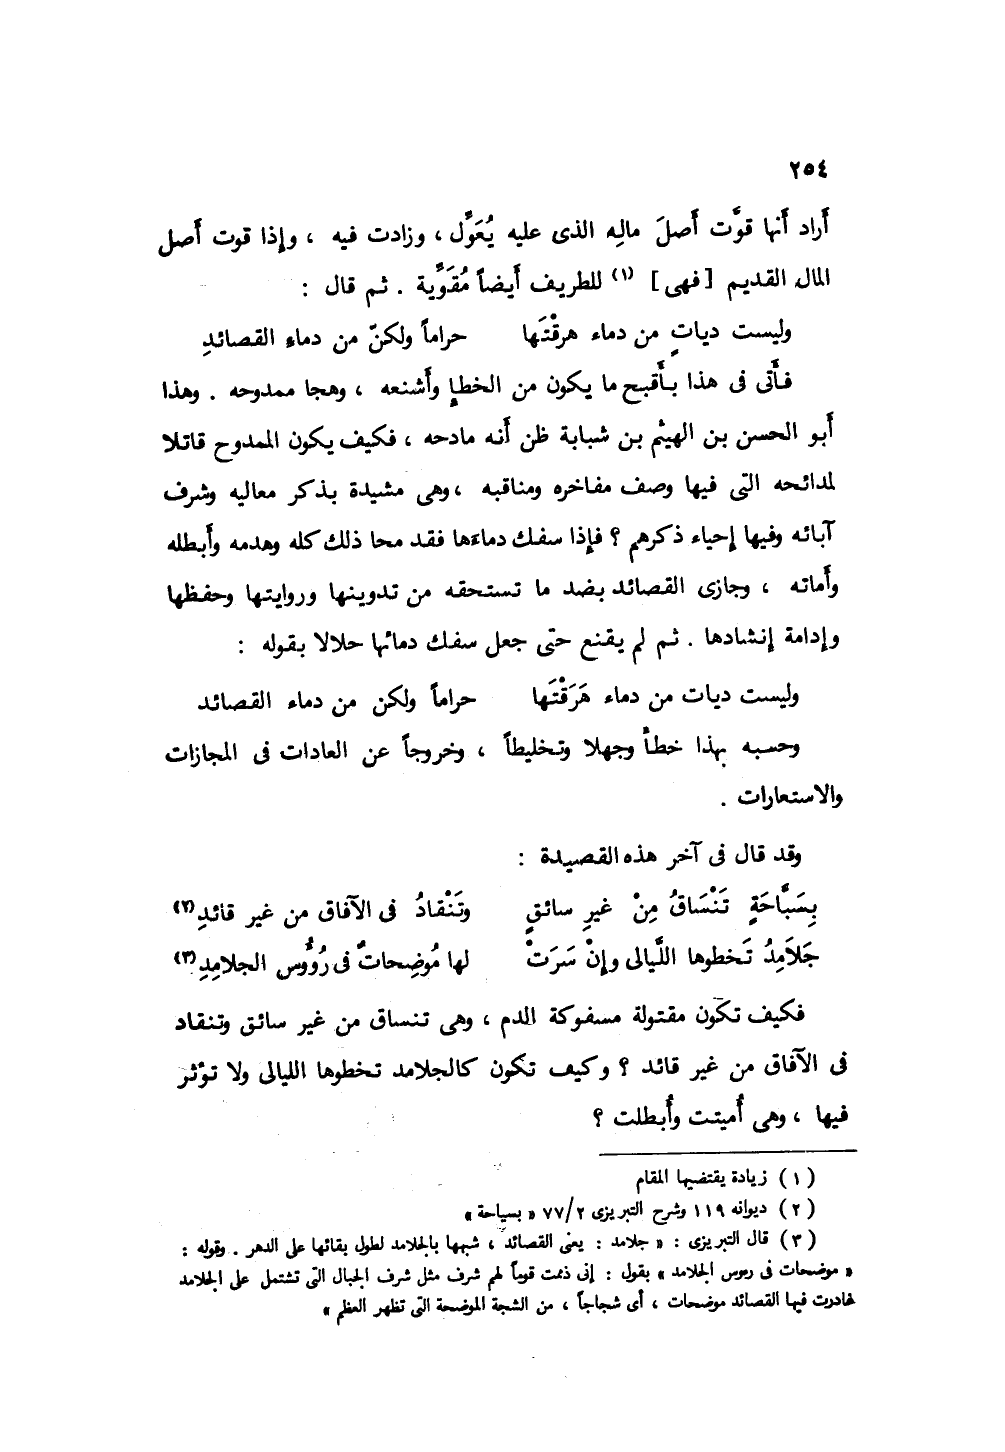 ٢٥٤
أَراد أَنها قوَّت أَصلَ مالِه الذى عليه يُعَوَّل ، وزادت فيه ، وإذا قوت أَصل
المال القديم [ فهى ] (١) للطريف أَيضاً مُقَوِّية . ثم قال :
وليست دياتٍ من دماء هرقْتَها حراماً ولكنّ من دماءِ القصائدِ
فأَتى فى هذا بأَقبح ما يكون من الخطإِ وأَشنعه ، وهجا ممدوحه . وهذا
أَبو الحسن بن الهيثم بن شبابة ظن أَنه مادحه ، فكيف يكون الممدوح قاتلا
لمدائحه التى فيها وصف مفاخره ومناقبه ، وهى مشيدة بذكر معاليه وشرف
آبائه وفيها إحياء ذكرهم ؟ فإِذا سفك دماءَها فقد محا ذلك كله وهدمه وأَبطله
وأَماته ، وجازى القصائد بضد ما تستحقه من تدوينها وروايتها وحفظها
وإدامة إنشادها . ثم لم يقنع حتى جعل سفك دمائها حلالا بقوله :
وليست ديات من دماء هَرَقْتَها حراماً ولكن من دماء القصائد
وحسبه بهذا خطأً وجهلا وتخليطاً ، وخروجاً عن العادات فى المجازات
والاستعارات .
وقد قال فى آخر هذه القصيدة :
بِسَبَّاحَةٍ تَنْسَاقُ مِنْ غيرِ سائقٍ وتَنْقادُ فى الآفاق من غير قائدِ(٢)
جَلَامِدُ تَخطوها اللَّيالى وإنْ سَرَتْ لها مُوضِحاتٌ فى رُؤُوسِ الجلامِدِ(٣)
فكيف تكون مقتولة مسفوكة الدم ، وهى تنساق من غير سائق وتنقاد
فى الآفاق من غير قائد ؟ وكيف تكون كالجلامد تخطوها الليالى ولا تؤثر
فيها ، وهى أُميتت وأُبطلت ؟
( ١ ) زيادة يقتضيها المقام
( ٢ ) ديوانه ١١٩ وشرح التبريزى ٧٧/٢ « بسياحة »
( ٣ ) قال التبريزى : « جلامد : يعنى القصائد ، شبهها بالجلامد لطول بقائها على الدهر . وقوله :
« موضحات فى رءوس الجلامد » بقول : إنى ذممت قوماً لهم شرف مثل شرف الجبال التى تشتمل على الجلامد
غادرت فيها القصائد موضحات ، أى شجاجاً ، من الشجة الموضحة التى تظهر العظم »